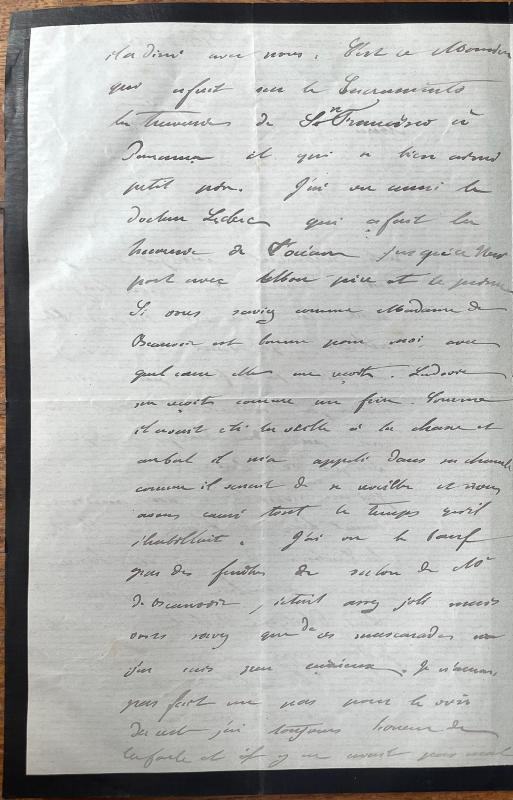 il a diné avec nous. C'est ce Monsieur
qui a fait sur le Sacramento
la traversée de Sn Francisco à
Panama et qui a bien aimé
petit père. J'ai vu aussi le
docteur Leclerc qui a fait la
traversée de l'océan jusqu'à New
port avec Mon père et le prince
Si vous saviez comme Madame de
Beauvoir est bonne pour moi, avec
quel cœur elle me reçoit. Ludovic
me reçoit comme un frère. Comme
il avait été la veille à la chasse et
au bal il m'a appelé dans sa chambre
comme il venait de se réveiller et nous
avons causé tout le temps qu'il
s'habillait. J'ai vu le bœuf
gras des fenêtres du salon de Me
de Beauvoir, c'était assez joli mais
vous savez que de ces mascarades
j'en suis peu curieux. Je n'aurais
pas fait un pas pour le voir
j'ai toujours horreur de
la foule et il y en avait pas mal